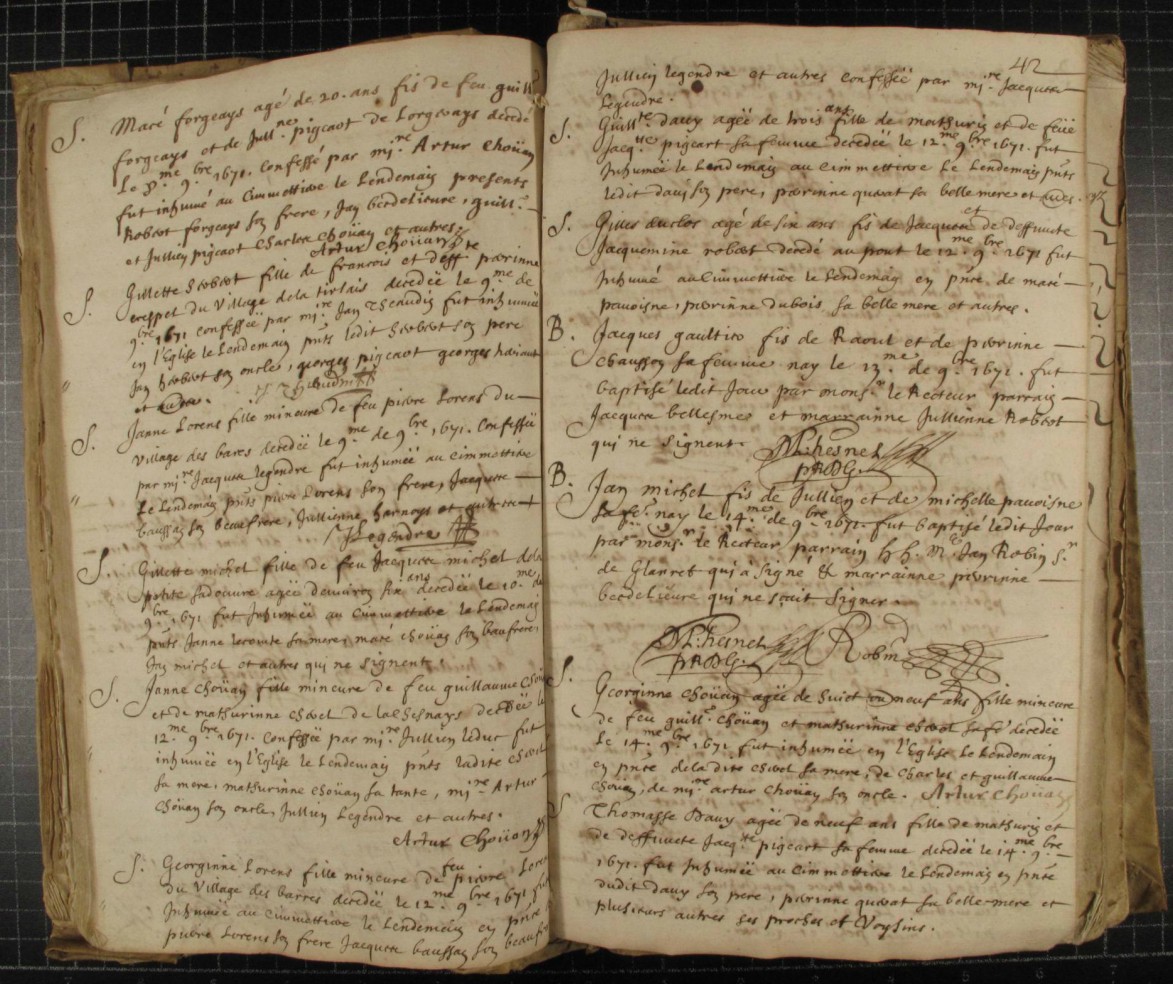 S. Macé forgeays agé de 20. ans fis de feu guill
forgeays et de Jull.ne pigeaot de Lorgerays decedé
Le 8.me 9.bre 1671. Confessé par mi.re Artur Choüan
fut inhumé au Cimmettiere le Lendemain presents
Robert forgeays son frere, Jan berdelieure, guill.
et Jullien pigeaot Charles Choüan et autres.
Artur Choüan
S. Gillette hobert fille de francois et deff.te perrinne
crespel du Village de la tirlais decedée le 9.me de
9.bre 1671 confessée par mi.re Jan Theaudin fut inhumée
en l'Eglise le Lendemain pnts ledit hobert son pere
Jan hobert son oncle, georges pigeaot georges
et autre.
S. Janne Lorens fille mineure de feu pierre Lorens du
Village des bares decedée le 9.me de 9.bre, 1671. Confessée
par mi.re Jacques legendre fut inhumée au cimmettiere
Le Lendemain pnts pierre Lorens son frere, Jacques
baussan son beaufrere, Jullienne harnoys et
Legendre
S. Gillette michel fille de feu Jacques michel de la
petite agée denviron six ans decedée le 10.me de
9.bre 1671 fut Inhumée au Cimmettiere le Lendemain
pnts Janne lecomte sa mere, mace choüan son beaufrere,
Jan michel et autres qui ne signent.
S. Janne Choüan fille mineure de feu guillaume Choü
et de mathurinne chevel de la chesnays decedée le
12.me 9.bre 1671. Confessée par mi.re Jullien leduc fut
inhumée en l'Eglise le Lendemain pnts ladite chevel
sa mere, mathurinne choüan sa tante, mi.re Artur
Choüan son oncle, Jullien Legendre et autres.
Artur Choüan
S. Georginne Lorens fille mineure de feu pierre Loren
du Village des barres decedée le 12.me 9.bre 1671 fut
Inhumée au Cimmettiere le Lendemain en pnce
pierre Lorens son frere Jacques baussan son beaufr
42
Jullien legendre et autres Confessée par mi.re Jacques
Legendre.
S. Guill.te dauy agée de trois ans fille de mathurin et de feüe
Jacq.tte pigeart sa femme decedée le 12.me 9.bre 1671. fut
Inhumée le Lendemain au Cimmettiere le Lendemain pnts
ledit dauy son pere, perrinne sa belle mere et
S. Gilles agé de six ans fis de Jacques et de deffuncte
Jacquemine robert decedé au pont le 12.me 9.bre 1671 fut
Inhumé au Cimmettiere le Lendemain en pnce. de macé
pauoisne, perrinne dubois sa belle mere et autres.
B. Jacques gaultier fis de Raoul et de perrinne
chausson sa femme nay le 13.me de 9.bre 1671. fut
baptisé ledit Jour par mons.r le Recteur parrain
Jacques bellesme et marrainne Jullienne Robert
qui ne signent.
M: hesnel
B. Jan michel fis de Jullien et de michelle pauoisne
sa fe. nay le 14.me de 9.bre 1671. fut baptisé ledit Jour
par mons.r le Recteur parrain h h. M.e Jan Robin S.r
de Glanret qui à signé & marrainne perrinne
berdelieure qui ne scait signer.
M: hesnel Robin
S. Georginne Choüan agée de huict ou neuf ans fille mineure
de feu guill. Choüan et mathurinne chevel sa fe decedée
Le 14.me 9.bre 1671 fut inhumée en l'Eglise le Lendemain
en pnce de ladite chevel sa mere, de Charles et guillaume
Choüan, de mi.re artur Choüan son oncle. Artur Choüan
S Thomasse Dauy agée de neuf ans fille de mathurin et
de deffuncte Jacq.tte pigeart sa femme decedée le 14.me 9.bre
1671. fut Inhumée au Cimmettiere le Lendemain en pnce
dudit dauy son pere, perrinne sa belle mere et
plusieurs autres ses proches et Voysins.